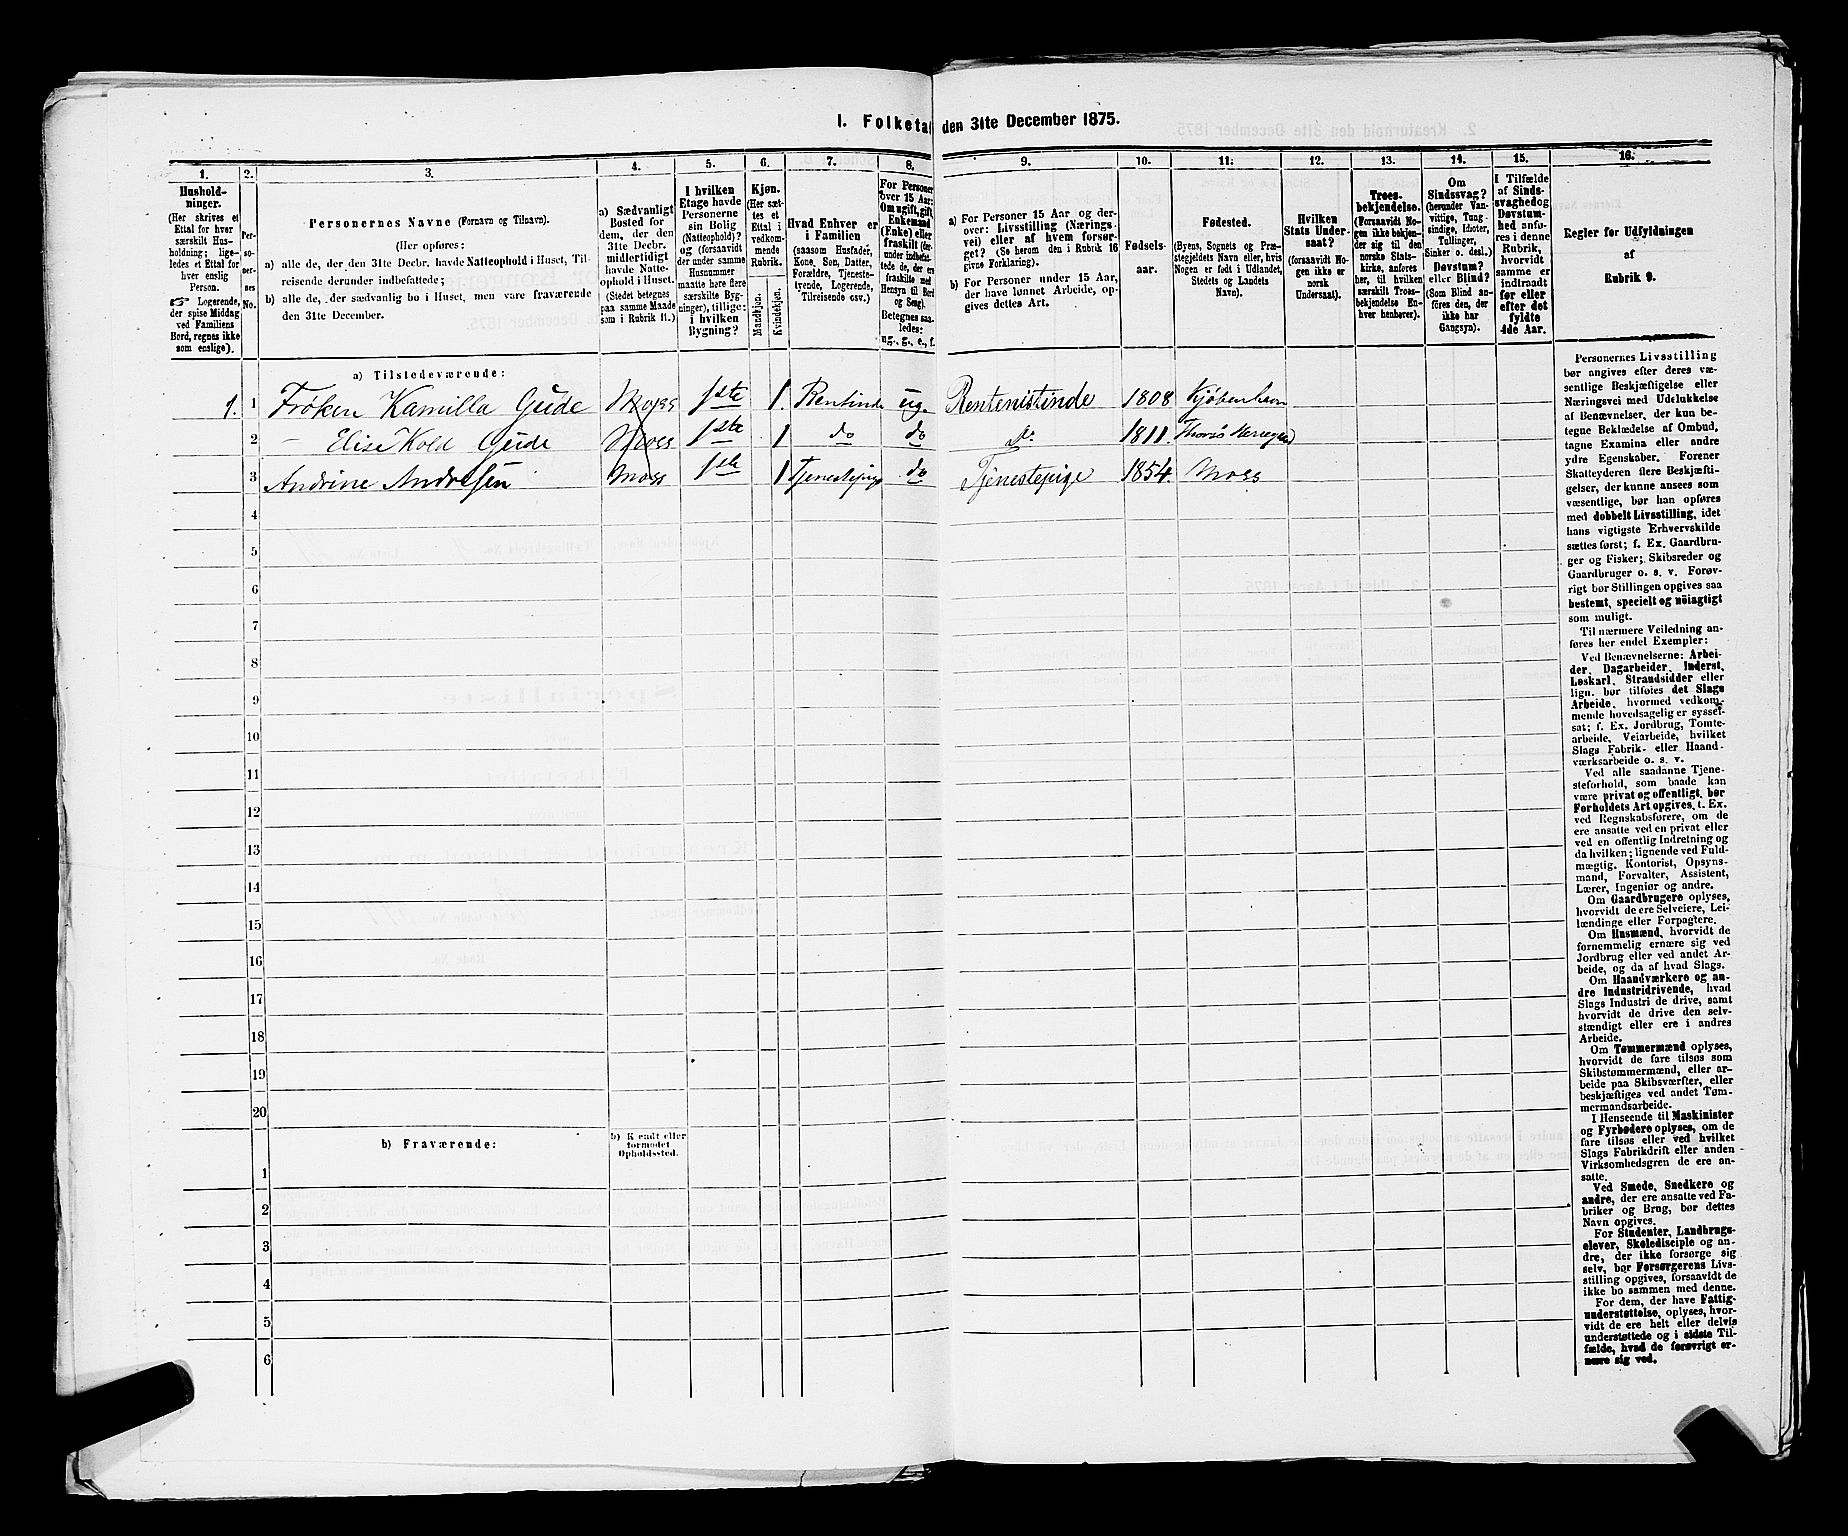 I. Folketal den 31te December 1875.
1. 2. 3. 4. 5. 6. 7. 8. 9. 10. 11. 12. 13. 14. 15. 16.
Hushold-
ninger.
(Her skrives et
Ettal for hver
særskilt Hus-
holdning; lige-
ledes et Ettal for
hver enslig
Person.
☞ Logerende,
der spise Middag
ved Familiens
Bord, regnes ikke
som enslige).
Per-
so-
ner-
nes
No.
Personernes Navne (Fornavn og Tilnavn).
(Her opføres:
a) alle de, der den 31te Decbr. havde Natteophold i Huset, Til-
reisende derunder indbefattede;
b) alle de, der sædvanlig bo i Huset, men vare fraværende
den 31te December.
a) Sædvanligt
Bosted for
dem, der den
31te Decbr.
midlertidigt
havde Natte-
ophold i Huset.
(Stedet betegnes
paa samme Maade
som i Rubrik 11.)
I hvilken
Etage havde
Personerne
sin Bolig
(Natteophold)?
og (forsaavidt
der under samme
Husnummer
maatte høre flere
særskilte Byg-
ninger), tillige:
i hvilken
Bygning?
Kjøn.
(Her sæt-
tes et
Ettal i
vedkom-
mende
Rubrik.
Mandkjøn.
Kvindekjøn.
Hvad Enhver er
i Familien
(saasom Husfader,
Kone, Søn, Datter,
Forældre, Tjeneste-
tyende, Logerende,
Tilreisende osv.)
For Personer
over 15 Aar:
Om ugift, gift,
Enkemand
(Enke) eller
fraskilt (der-
under indbefat-
tede de, der ere
fraskilte med
Hensyn til Bord
og Seng).
Betegnes saa-
ledes:
ug., g., e., f.
a) For Personer 15 Aar og der-
over: Livsstilling (Nærings-
vei) eller af hvem forsør-
get? (Se herom den i Rubrik 16
givne Forklaring).
b) For Personer under 15 Aar,
der have lønnet Arbeide, op-
gives dettes Art.
Fødsels-
aar.
Fødested.
(Byens, Sognets og Præ-
stegjeldets Navn eller, hvis
Nogen er født i Udlandet,
Stedets og Landets
Navn).
Hvilken
Stats Under-
saat?
(forsaavidt No-
gen ikke er
norsk
Undersaat).
Troes-
bekjendelse.
(Forsaavidt No-
gen ikke bekjen-
der sig til den
norske Stats-
kirke, anføres
her, til hvilken
særskilt Troes-
bekjendelse En-
hver henhører).
Om
Sindssvag?
(herunder Van-
vittige, Tung-
sindige, Idioter,
Tullinger,
Sinker o. desl.)
eller
Døvstum?
eller Blind?
(Som Blind an-
føres den, der
ikke har
Gangsyn).
I Tilfælde
af Sinds-
svaghed og
Døvstum-
hed anfø-
res i denne
Rubrik,
hvorvidt
samme er
indtraadt
før eller
efter det
fyldte
4de Aar.
Regler for Udfyldningen
af
Rubrik 9.
a) Tilstedeværende:
1. 1 Frøken Kamilla Gude Moss 1ste 1. Rentinde ug. Rentenistinde 1808 Kjøbenhavn
2 – Elise Kold Gude Moss 1ste 1 do do do 1811
3 Andrine Andresen Moss 1ste 1 Tjenestepige do Tjenestepige 1854. Moss
4
5
6
7
8
9
10
11
12
13
14
15
16
17
18
19
20
b) Fraværende:
b) Kjendt eller
formodet
Opholdssted.
1
2
3
4
5
6
Personernes Livsstilling
bør angives efter deres væ-
sentlige Beskjæftigelse eller
Næringsvei med Udelukkelse
af Benævnelser, der kun be-
tegne Beklædelse af Ombud,
tagne Examina eller andre
ydre Egenskaber. Forener
Skatteyderen flere Beskjæfti-
gelser, der kunne ansees som
væsentlige, bør han opføres
med dobbelt Livsstilling, idet
hans vigtigste Erhvervskilde
sættes først; f. Ex. Gaardbru-
ger og Fisker; Skibsreder og
Gaardbruger o. s. v. Forøv-
rigt bør Stillingen opgives saa
bestemt, specielt og nøiagtigt
som muligt.
Til nærmere Veiledning an-
føres her endel Exempler:
Ved Benævnelserne: Arbei-
der, Dagarbeider, Inderst,
Løskarl, Strandsidder eller
lign. bør tilføies det Slags
Arbeide, hvormed vedkom-
mende hovedsagelig er syssel-
sat; f. Ex. Jordbrug, Tomte-
arbeide, Veiarbeide, hvilket
Slags Fabrik- eller Haand-
værksarbeide o. s. v.
Ved alle saadanne Tjene-
steforhold, som baade kan
være privat og offentligt, bør
Forholdets Art opgives, f. Ex.
ved Regnskabsførere, om de
ere ansatte ved en privat eller
ved en offentlig Indretning og
da hvilken; lignende ved Fuld-
mægtig, Kontorist, Opsyns-
mand, Forvalter, Assistent,
Lærer, Ingeniør og andre.
Om Gaardbrugere oplyses,
hvorvidt de ere Selveiere, Lei-
lændinge eller Forpagtere.
Om Husmænd, hvorvidt de
fornemmelig ernære sig ved
Jordbrug eller ved andet Ar-
beide, og da af hvad Slags.
Om Haandværkere og an-
dre Industridrivende, hvad
Slags Industri de drive, samt
hvorvidt de drive den selv-
stændigt eller ere i andres
Arbeide.
Om Tømmermænd oplyses,
hvorvidt de fare tilsøs som
Skibstømmermænd, eller ar-
beide paa Skibsværfter, eller
beskjæftiges ved andet Tøm-
mermandsarbeide.
I Henseende til Maskinister
og Fyrbødere oplyses, om de
fare tilsøs eller ved hvilket
Slags Fabrikdrift eller anden
Virksomhedsgren de ere an-
satte.
Ved Smede, Snedkere og
andre, der ere ansatte ved Fa-
briker og Brug, bør dettes
Navn opgives.
For Studenter, Landbrugs-
elever, Skoledisciple og an-
dre, der ikke forsørge sig
selv, bør Forsørgerens Livs-
stilling opgives, forsaavidt de
ikke bo sammen med denne.
For dem, der have Fattig-
understøttelse, oplyses, hvor-
vidt de ere helt eller delvis
understøttede og i sidste Til-
fælde, hvad de forøvrigt er-
nære sig ved.